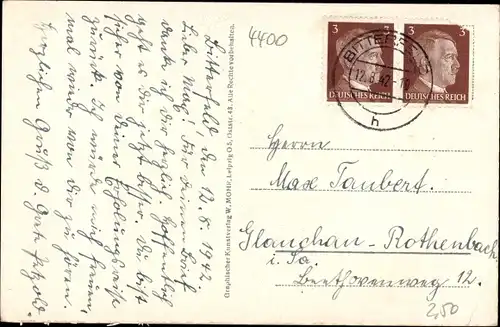 4400
3
3
3
3
DEUTSCHES REICH
DEUTSCHES REICH
BITTERFELD
12.8.42
h
Bitterfeld, den 12.8.1942.
Lieber Max! Für Deinen Brief
danke ich dir herzlich. Hoffentlich
geht es dir jetzt besser. Du bist
sicher von deiner Erholungsreise
zurück. Ich würde mich freuen,
mal wieder von dir zu hören.
Herzlichen Gruß d.
Graphischer Kunstverlag W. Mohr, Leipzig O 5, Oststr. 43. Alle Rechte vorbehalten.
Herrn
Max Taubert.
Glauchau-Rothenbach
i. Sa.
Beethovenweg 12.
2,50